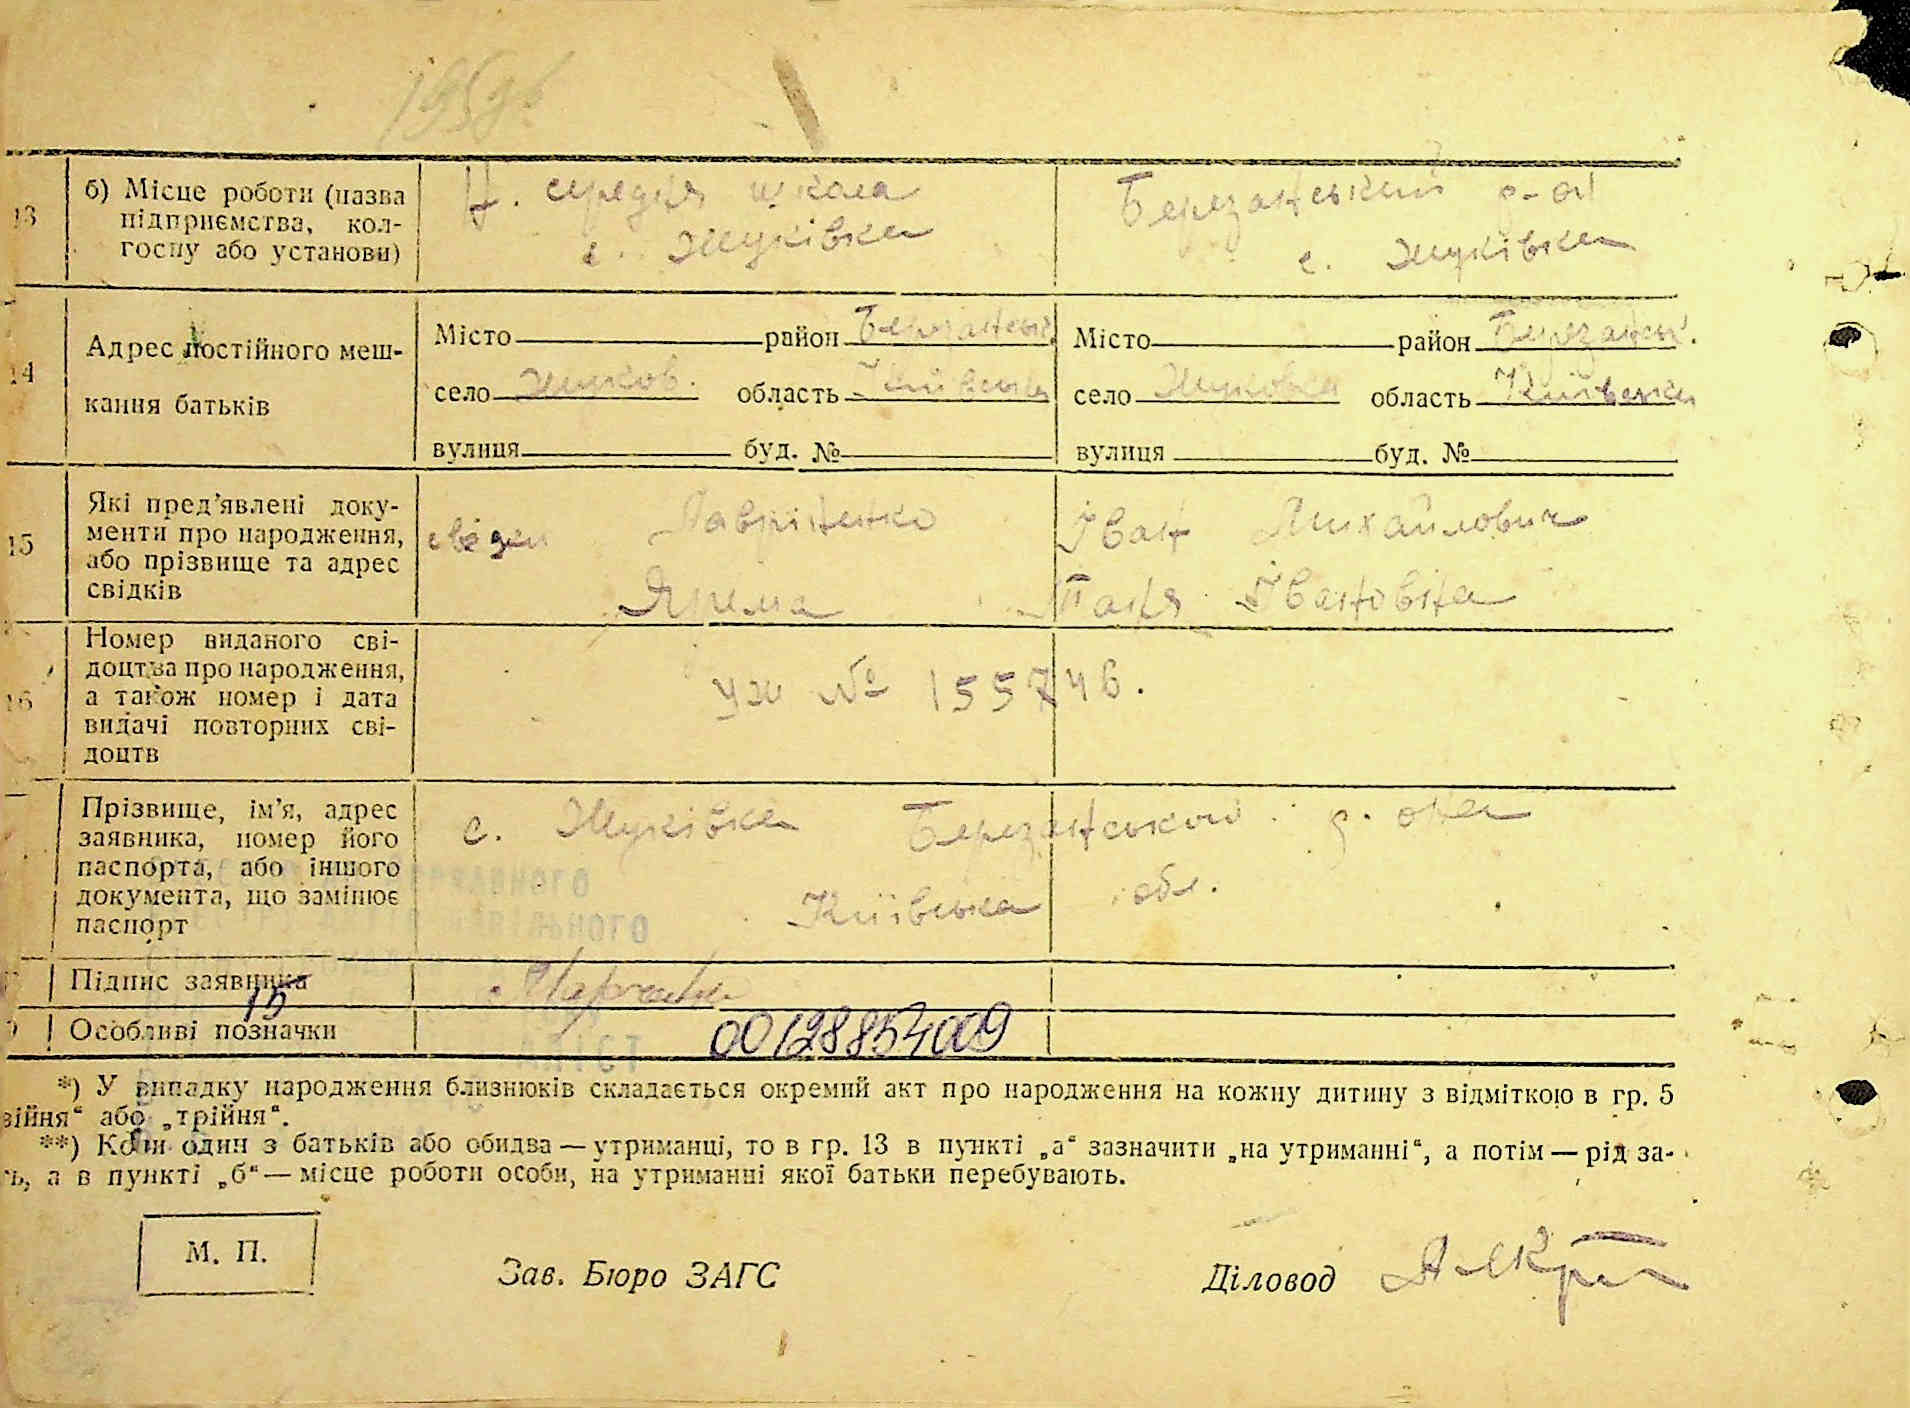 13
б) Місце роботи (назва
підприємства, кол-
госпу або установи)
Н. середня школа
с. Жуківка
Березанський р-он
с. Жуківка
14
Адрес постійного меш-
кання батьків
Місто район Березанськ
село Жуков. область Київська
вулиця буд. №
Місто район Березанськ.
село Жуковка область Київська
вулиця буд. №
15
Які пред'явлені доку-
менти про народження,
або прізвище та адрес
свідків
Лавріненко Іван Михайлович
Ярема Таня Івановна
16
Номер виданого сві-
доцтва про народження,
а також номер і дата
видачі повторних сві-
доцтв
УЖ № 155746.
Прізвище, ім'я, адрес
заявника, номер його
паспорта, або іншого
документа, що замінює
паспорт
с. Жуківка Березанський р.
Київська обл.
Підпис заявника
15
Особливі позначки
00128854009
*) У випадку народження близнюків складається окремий акт про народження на кожну дитину з відміткою в гр. 5
війня“ або „трійня“.
**) Коли один з батьків або обидва — утриманці, то в гр. 13 в пункті „а“ зазначити „на утриманні“, а потім — рід за-
ь, а в пункті „б“ — місце роботи особи, на утриманні якої батьки перебувають.
М. П.
Зав. Бюро ЗАГС
Діловод